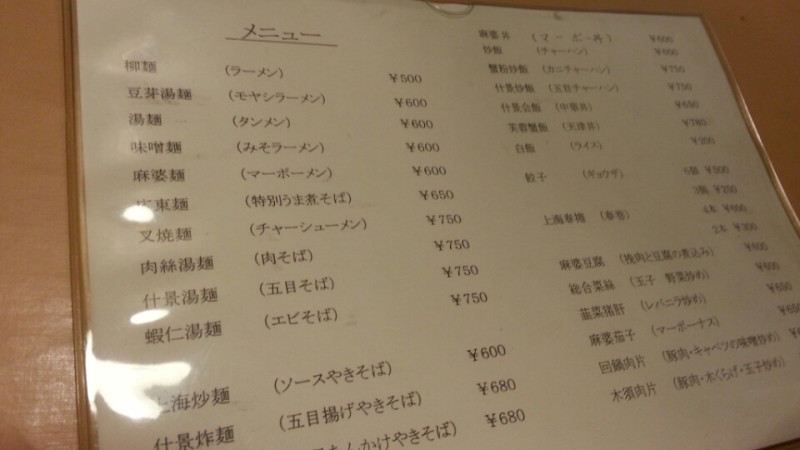 メニュー
柳麺 (ラーメン) ¥500
豆芽湯麺 (モヤシラーメン) ¥600
湯麺 (タンメン) ¥600
味噌麺 (みそラーメン) ¥600
麻婆麺 (マーボーメン) ¥600
広東麺 (特別うま煮そば) ¥650
叉焼麺 (チャーシューメン) ¥750
肉絲湯麺 (肉そば) ¥750
什景湯麺 (五目そば) ¥750
蝦仁湯麺 (エビそば) ¥750
上海炒麺 (ソースやきそば) ¥600
什景炸麺 (五目揚げやきそば) ¥680
あんかけやきそば) ¥680
麻婆丼 (マーボー丼) ¥600
炒飯 (チャーハン) ¥600
蟹粉炒飯 (カニチャーハン) ¥750
什景炒飯 (五目チャーハン) ¥750
什景会飯 (中華丼)
芙蓉蟹飯 (天津丼) ¥780
白飯 (ライス) ¥200
餃子 (ギョウザ) 6個 ¥500
3個 ¥250
上海春捲 (春巻) 4本 ¥600
2本 ¥300
麻婆豆腐 (挽肉と豆腐の煮込み) ¥600
総合菜絲 (玉子 野菜炒め) ¥600
韮菜猪肝 (レバニラ炒め) ¥600
麻婆茄子 (マーボーナス) ¥650
回鍋肉片 (豚肉・キャベツの味噌炒め)
木須肉片 (豚肉・木くらげ・玉子炒め)